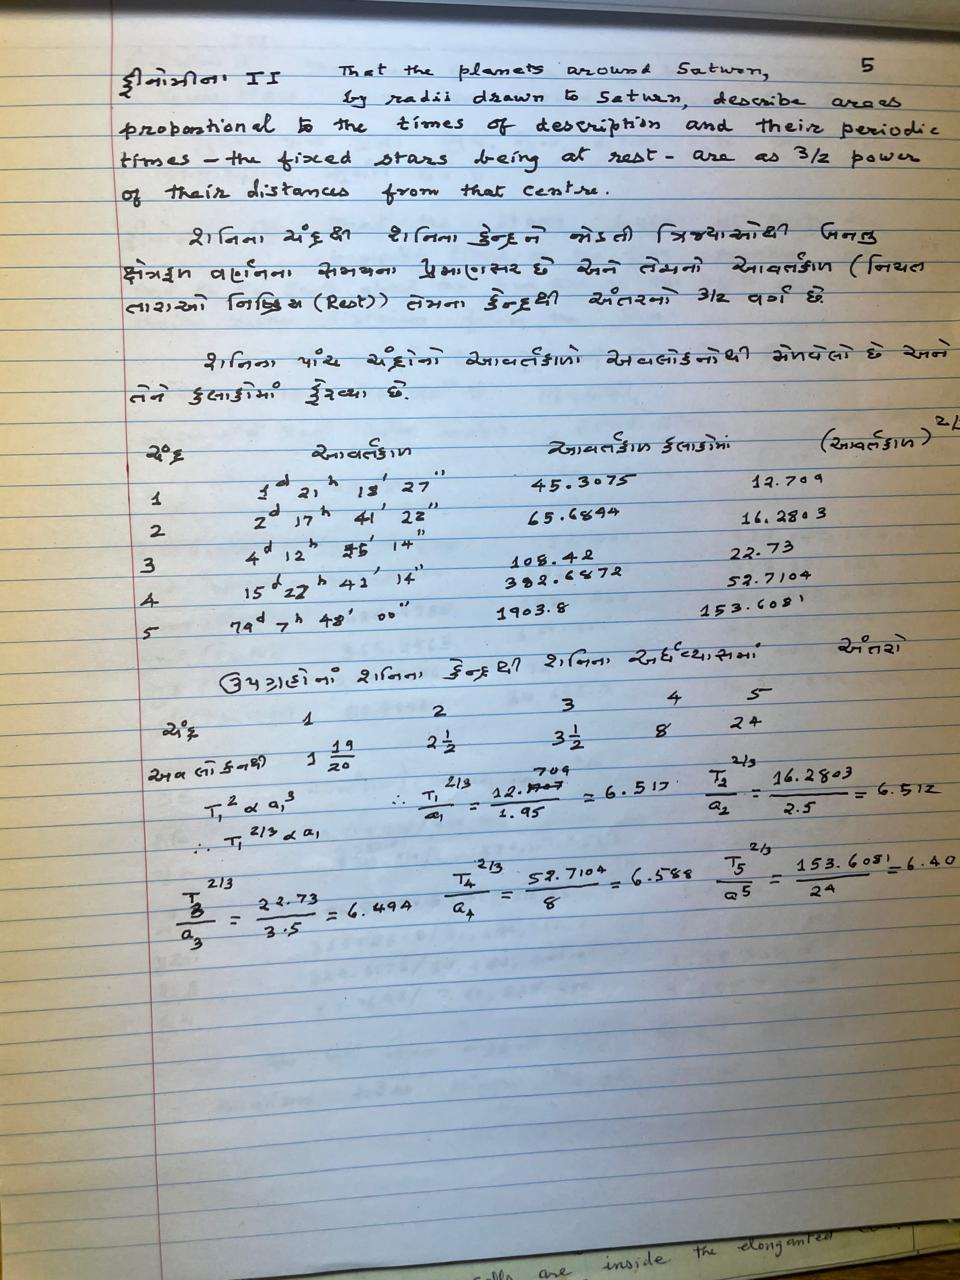 ફીનોમીના II That the planets around Saturn, 5
by radii drawn to Saturn, describe areas
proportional to the times of description and their periodic
times - the fixed stars being at rest - are as 3/2 power
of their distances from that centre.
શનિના ચંદ્રથી શનિના કેન્દ્રને જોડતી ત્રિજ્યાઓથી બનતુ
ક્ષેત્રફળ વર્ણનના સમયના પ્રમાણસર છે અને તેમનો આવર્તકાળ (નિયત
તારાઓ નિષ્ક્રિય (Rest)) તેમના કેન્દ્રથી અંતરનો 3/2 વર્ગ છે.
શનિના પાંચ ચંદ્રોનો આવર્તકાળો અવલોકનોથી મેળવેલો છે અને
તેને કલાકોમાં ફેરવ્યા છે.
ચંદ્ર આવર્તકાળ આવર્તકાળ કલાકોમાં (આવર્તકાળ)^2/
1 1^d 21^h 18' 27'' 45.3075 12.709
2 2^d 17^h 41' 22'' 65.6894 16.2803
3 4^d 12^h 25' 14'' 108.42 22.73
4 15^d 22^h 41' 14'' 382.6872 52.7104
5 79^d 7^h 48' 00'' 1903.8 153.6081
ઉપગ્રહોનાં શનિના કેન્દ્રથી શનિના અર્ધવ્યાસમાં અંતરો
ચંદ્ર 1 2 3 4 5
અવલોકનથી 1 19/20 2 1/2 3 1/2 8 24
T₁² ∝ a₁³ ∴ T₁^2/3 / a₁ = 12.709 / 1.95 = 6.517 T₂^2/3 / a₂ = 16.2803 / 2.5 = 6.512
∴ T₁^2/3 ∝ a₁
T₃^2/3 / a₃ = 22.73 / 3.5 = 6.494 T₄^2/3 / a₄ = 52.7104 / 8 = 6.588 T₅^2/3 / a5 = 153.6081 / 24 = 6.40
are inside the elongated